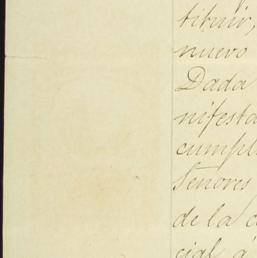 tituir,
nuevo
Dada
nifesta
cumpli
Señores
de la c
cial á